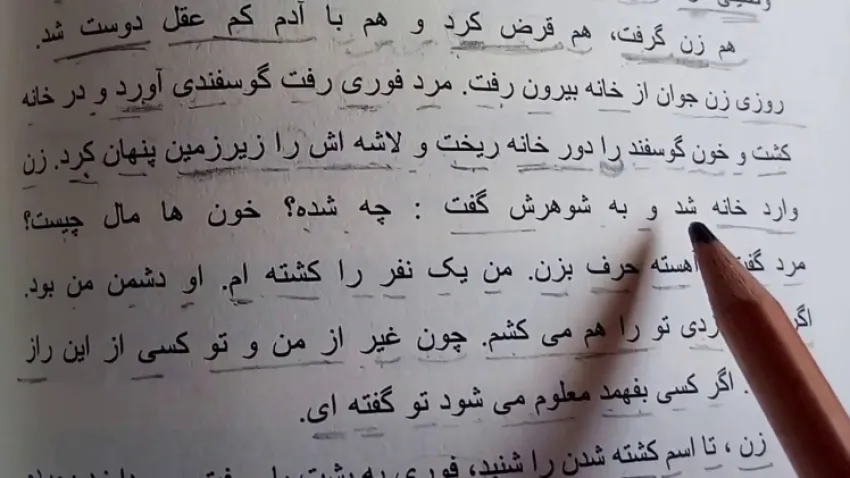 هم زن گرفت، هم قرض کرد و هم با آدم کم عقل دوست شد.
روزی زن جوان از خانه بیرون رفت. مرد فوری رفت گوسفندی آورد و در خانه
کشت و خون گوسفند را دور خانه ریخت و لاشه اش را زیرزمین پنهان کرد. زن
وارد خانه شد و به شوهرش گفت : چه شده؟ خون ها مال چیست؟
مرد آهسته حرف بزن. من یک نفر را کشته ام. او دشمن من بود.
تو را هم می کشم. چون غیر از من و تو کسی از این راز
. اگر کسی بفهمد معلوم می شود تو گفته ای.
زن ، تا اسم کشته شدن را شنید، فوری به پشت